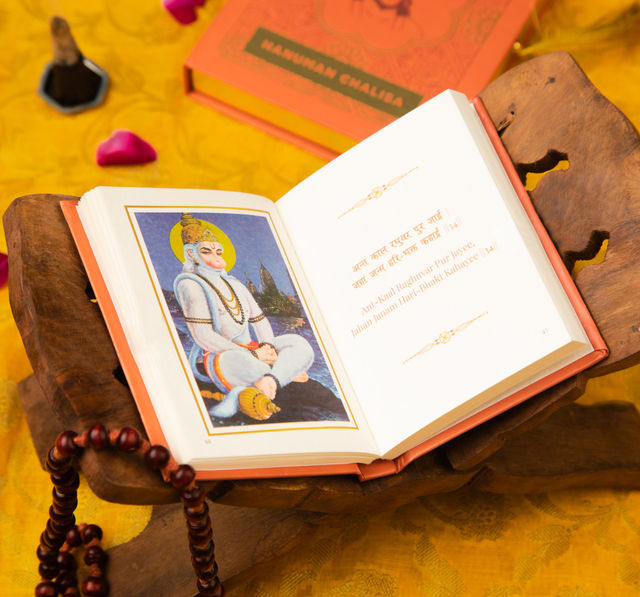 HANUMAN CHALISA
अन्त काल रघुबर पुर जाई
जहां जन्म हरि-भक्त कहाई ॥३४॥
Ant-Kaal Raghuvar Pur Jayee,
Jahan Janam Hari-Bhakt Kahayee ||34||